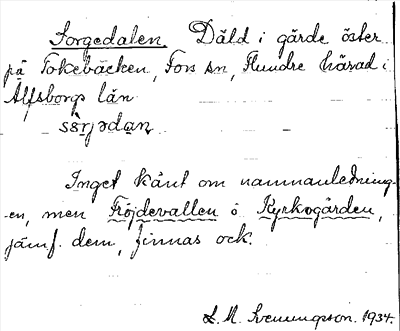 Sorgedalen. Däld i gärde öster
på Tokebäcken, Fors sn, Flundre härad i
Älfsborgs län
sòrjədan
Inget känt om namnanledning-
en, men Fröjdevallen o Kyrkogården,
jämf. dem, finnas ock.
L. M. Svenungson. 1934.